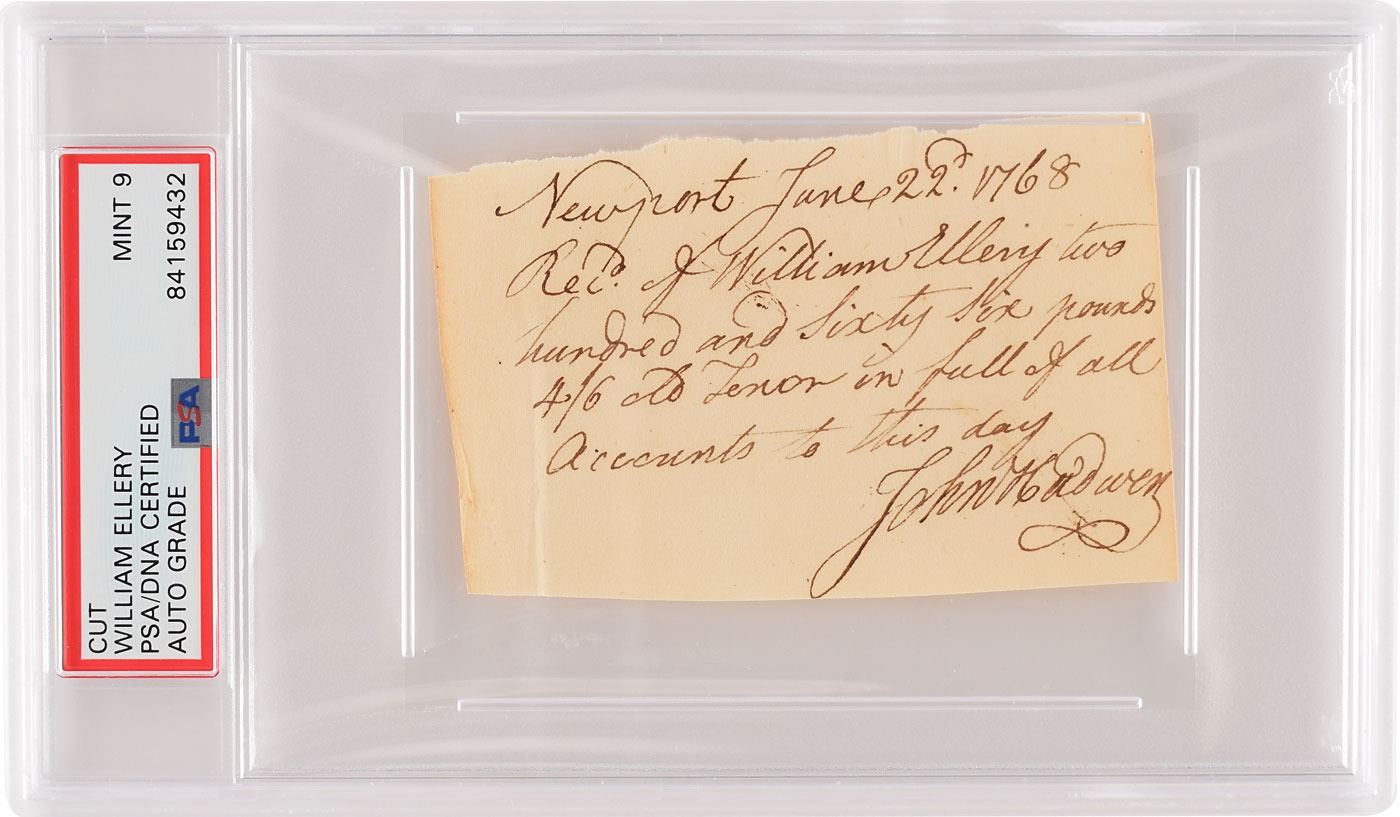 CUT
WILLIAM ELLERY
PSA/DNA CERTIFIED
AUTO GRADE
MINT 9
84159432
PSA
Newport June 22d. 1768
Recd. of William Ellery two
hundred and Sixty Six pounds
4/6 old Tenor in full of all
Accounts to this day
John Hadwen